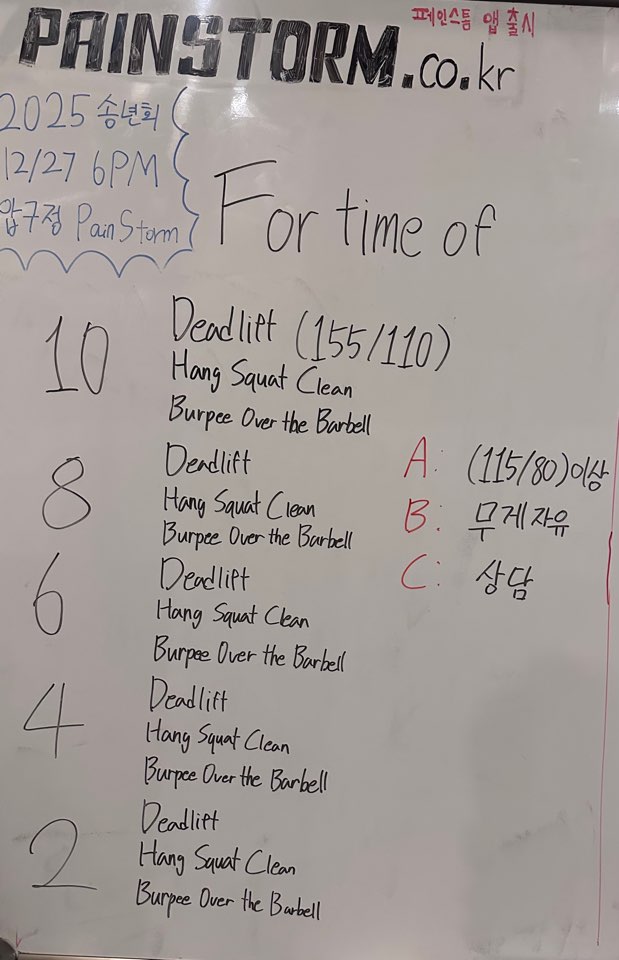 페인스톰 앱 출시
PAINSTORM.co.kr
2025 송년회
12/27 6PM
압구정 PainStorm
For time of
10
Deadlift (155/110)
Hang Squat Clean
Burpee Over the Barbell
8
Deadlift
Hang Squat Clean
Burpee Over the Barbell
6
Deadlift
Hang Squat Clean
Burpee Over the Barbell
4
Deadlift
Hang Squat Clean
Burpee Over the Barbell
2
Deadlift
Hang Squat Clean
Burpee Over the Barbell
A: (115/80)이상
B: 무게자유
C: 상담